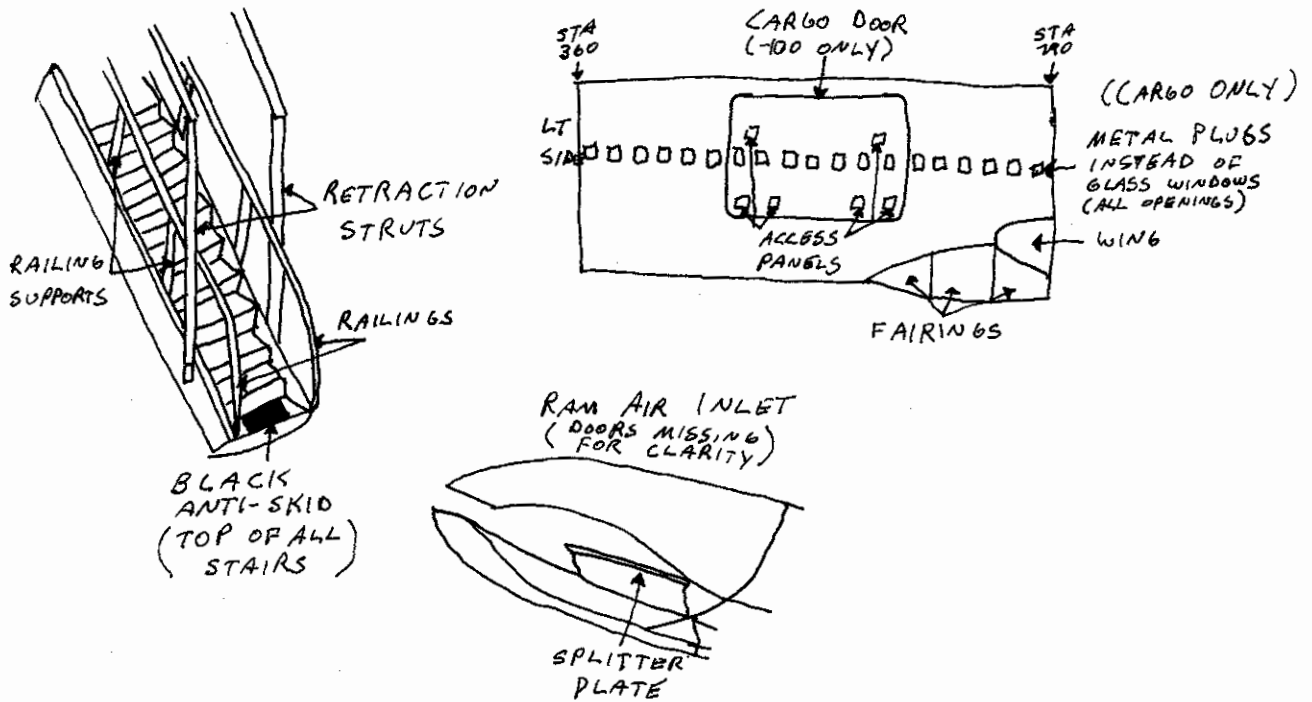 RETRACTION
STRUTS
RAILING
SUPPORTS
RAILINGS
BLACK
ANTI-SKID
(TOP OF ALL
STAIRS)
STA
360
CARGO DOOR
(-100 ONLY)
STA
(CARGO ONLY)
LT
SIDE
METAL PLUGS
INSTEAD OF
GLASS WINDOWS
(ALL OPENINGS)
ACCESS
PANELS
WING
FAIRINGS
RAM AIR INLET
(DOORS MISSING
FOR CLARITY)
SPLITTER
PLATE